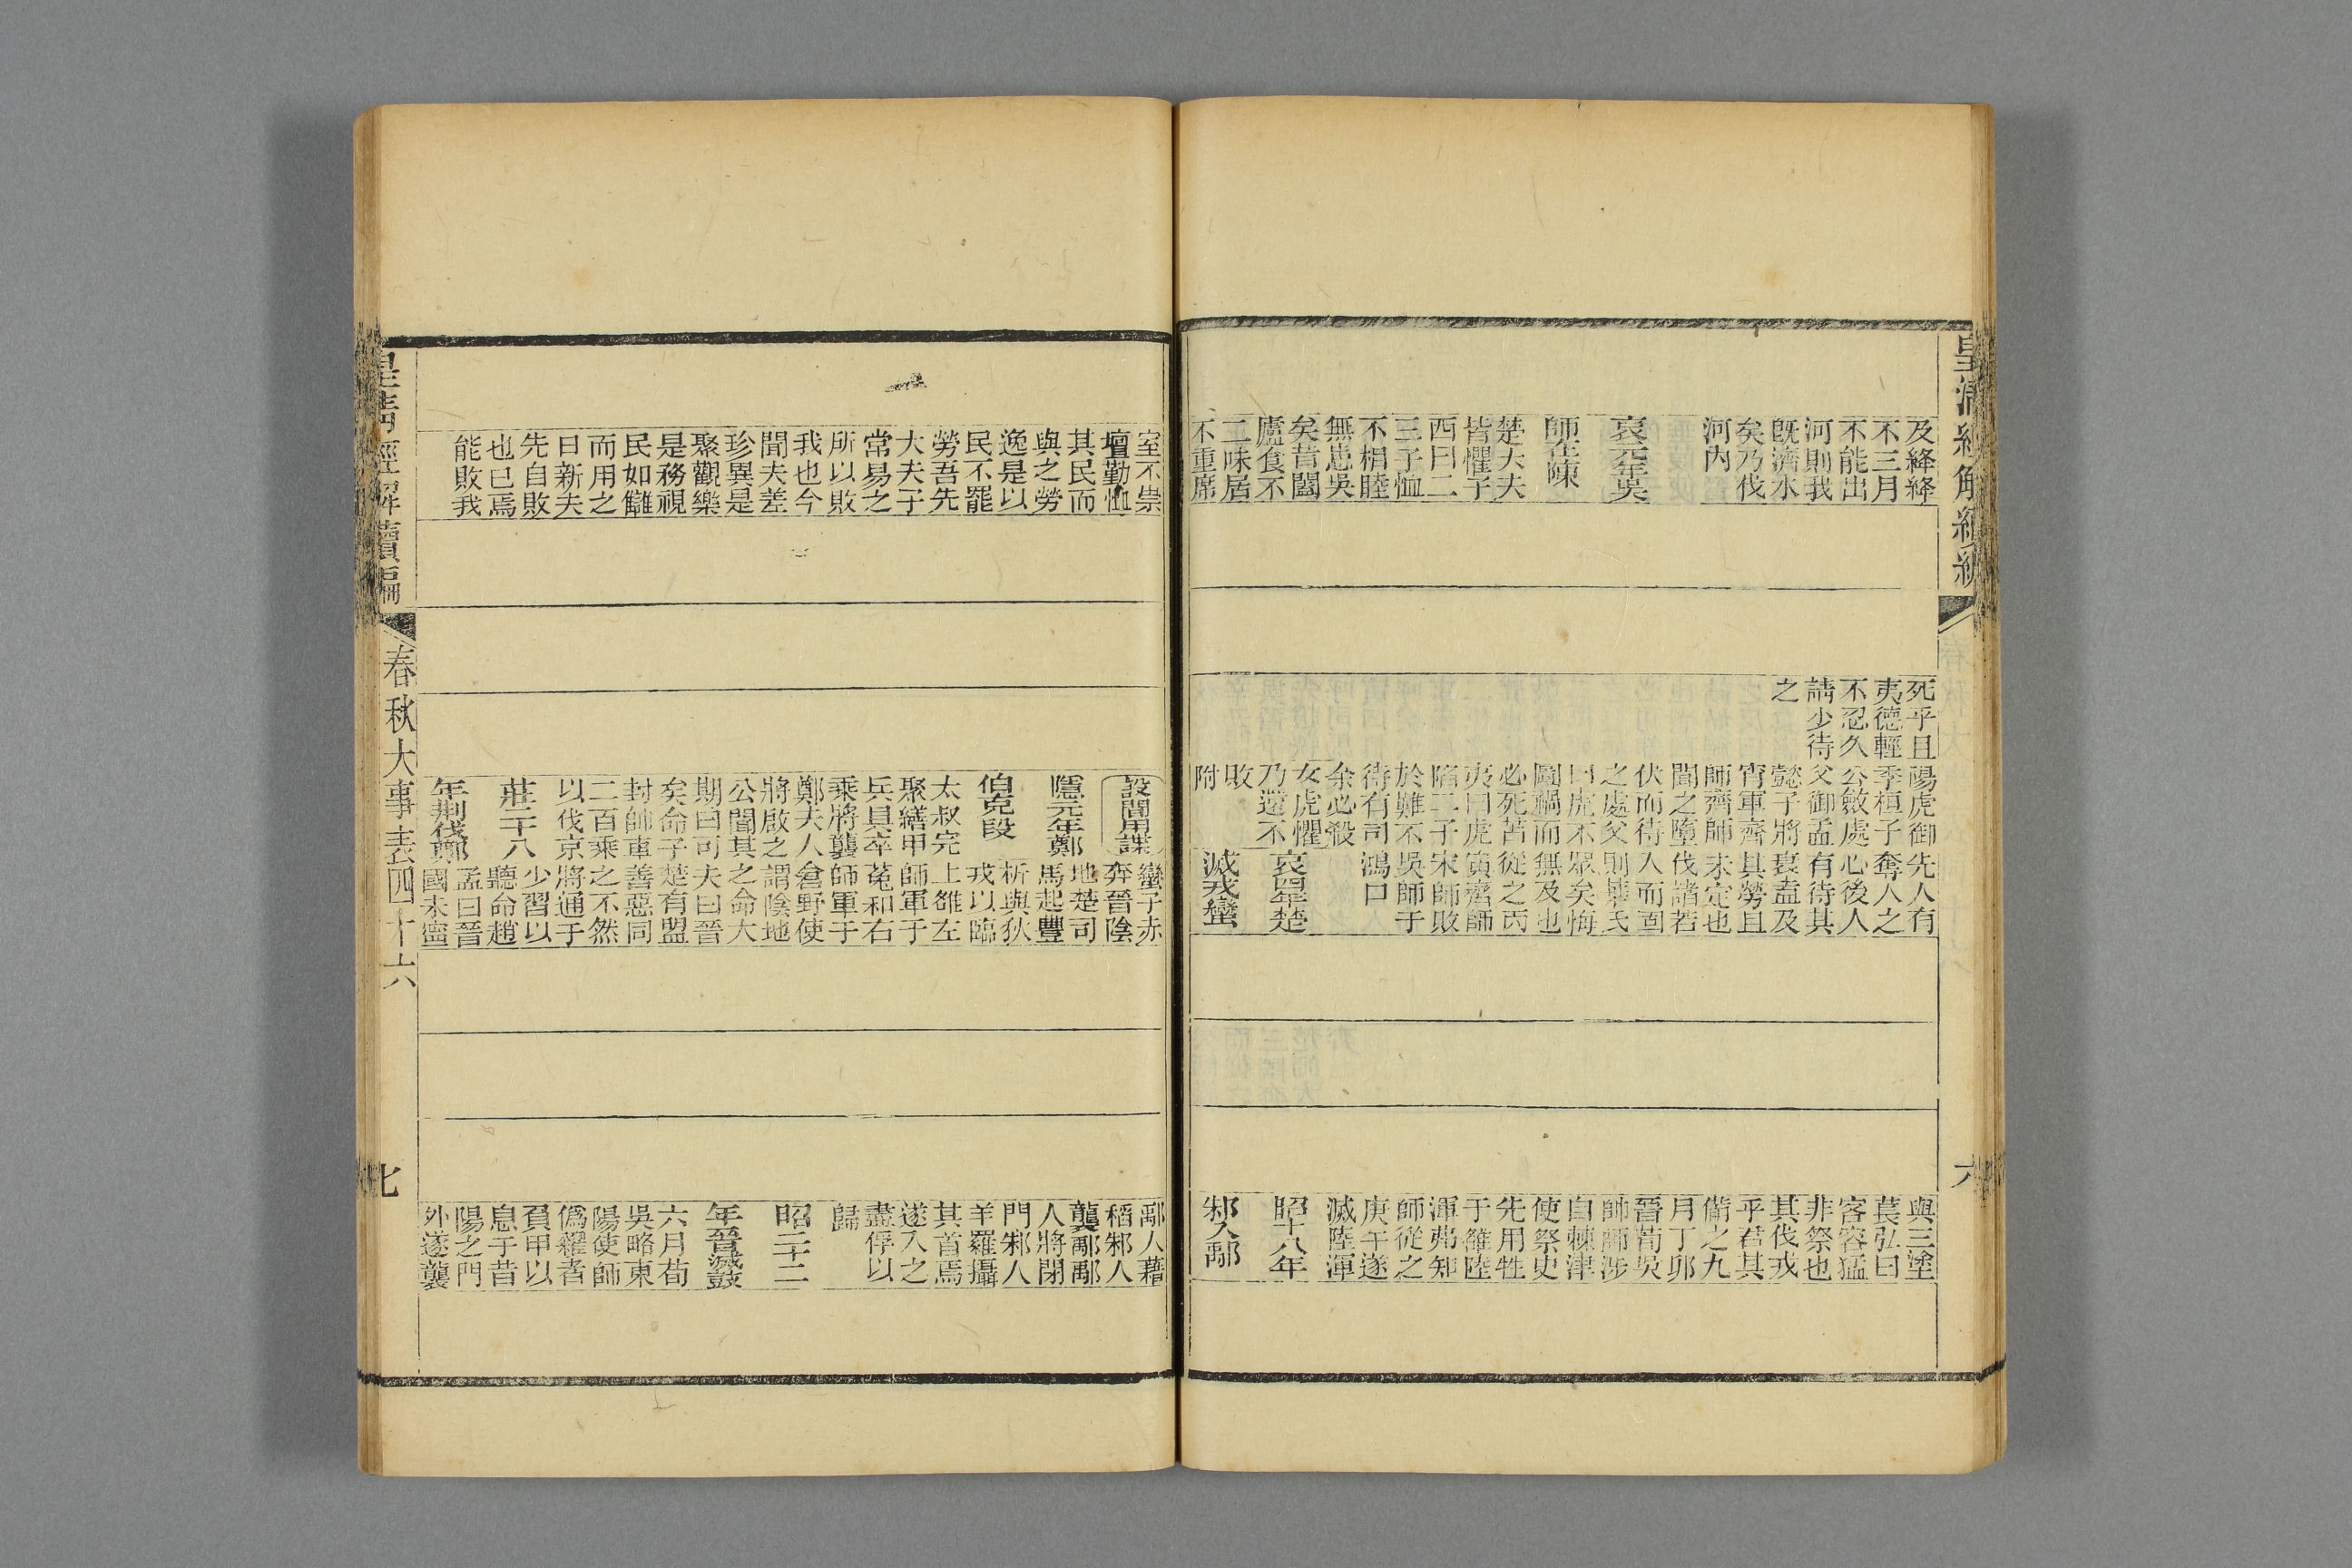 皇清經解續編
六
及絳絳
不三月
不能出
河則我
既濟水
矣乃伐
河內
哀元年吳
師在陳
楚大夫
皆懼子
西曰二
三子恤
不相睦
無患吳
矣昔闔
廬食不
二味居
不重席
死乎且
夷德輕
不忍久
請少待
之
陽虎御
季桓子
公斂處
父御孟
懿子將
宵軍齊
師齊師
聞之墮
伏而待
之處父
曰虎不
圖禍而
必死苫
夷曰虎
陷二子
於難不
待有司
余必殺
女虎懼
乃還不
敗
附
先人有
奪人之
心後人
有待其
衰盍及
其勞且
未定也
伐諸若
入而固
則華氏
眾矣悔
無及也
從之丙
寅齊師
宋師敗
吳師于
鴻口
哀四年楚
滅戎蠻
與三塗
萇弘曰
客容猛
非祭也
其伐戎
乎君其
備之九
月丁卯
晉荀吳
帥師涉
自棘津
使祭史
先用牲
于雒陸
渾弗知
師從之
庚午遂
滅陸渾
昭十八年
邾入鄅
室不崇
壇勤恤
其民而
與之勞
逸是以
民不罷
勞吾先
大夫子
常易之
所以敗
我也今
聞夫差
珍異是
聚觀樂
是務視
民如讎
而用之
日新夫
先自敗
也已焉
能敗我
設間用諜
隱元年鄭
伯克段
太叔完
聚繕甲
兵具卒
乘將襲
鄭夫人
將啟之
公聞其
期曰可
矣命子
封帥車
二百乘
以伐京
莊二十八
年荆伐鄭
蠻子赤
奔晉陰
地楚司
馬起豐
析與狄
戎以臨
上雒左
師軍于
菟和右
師軍于
倉野使
謂陰地
之命大
夫曰晉
楚有盟
善惡同
之不然
將通于
少習以
聽命趙
孟曰晉
國未寧
鄅人藉
稻邾人
襲鄅鄅
人將閉
門邾人
羊羅攝
其首焉
遂入之
盡俘以
歸
昭二十二
年晉滅鼓
六月荀
吳略東
陽使師
偽糴者
負甲以
息于昔
陽之門
外遂襲
皇清經解續編
春秋大事表四十六
七